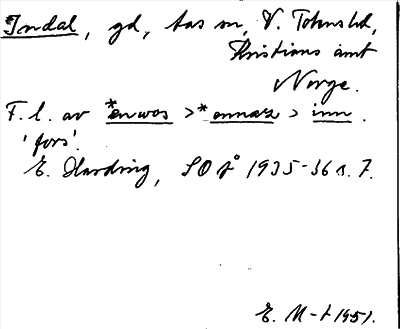 Indal, gd, Aas sn, V. Totens hd,
Kristians amt
Norge.
F. l. av *enwos > *ennaz > inn.
'fors'.
E. Harding, SOÅ 1935-36 s. 7.
E. M-t 1951.